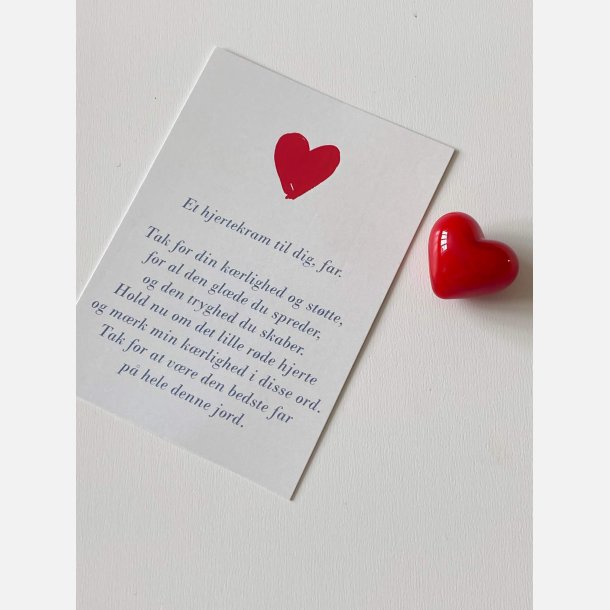 Et hjertekram til dig, far.
Tak for din kærlighed og støtte,
for al den glæde du spreder,
og den tryghed du skaber.
Hold nu om det lille røde hjerte
og mærk min kærlighed i disse ord.
Tak for at være den bedste far
på hele denne jord.